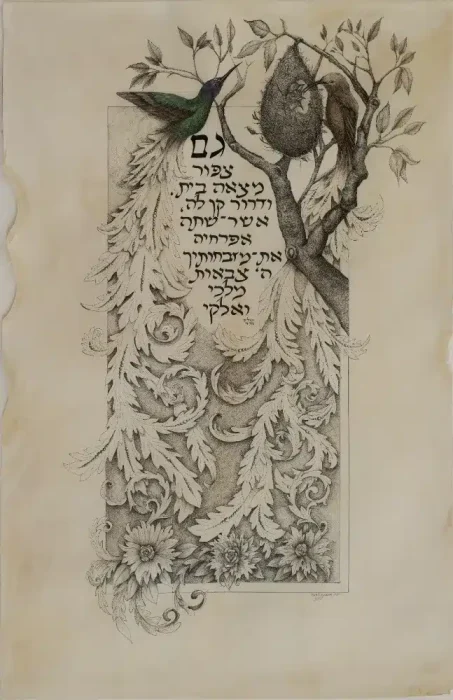 גם
צפור
מצאה בית
ודרור קן לה,
אשר־שתה
אפרחיה
את־מזבחותיך
ה' צבאות
מלכי
ואלקי